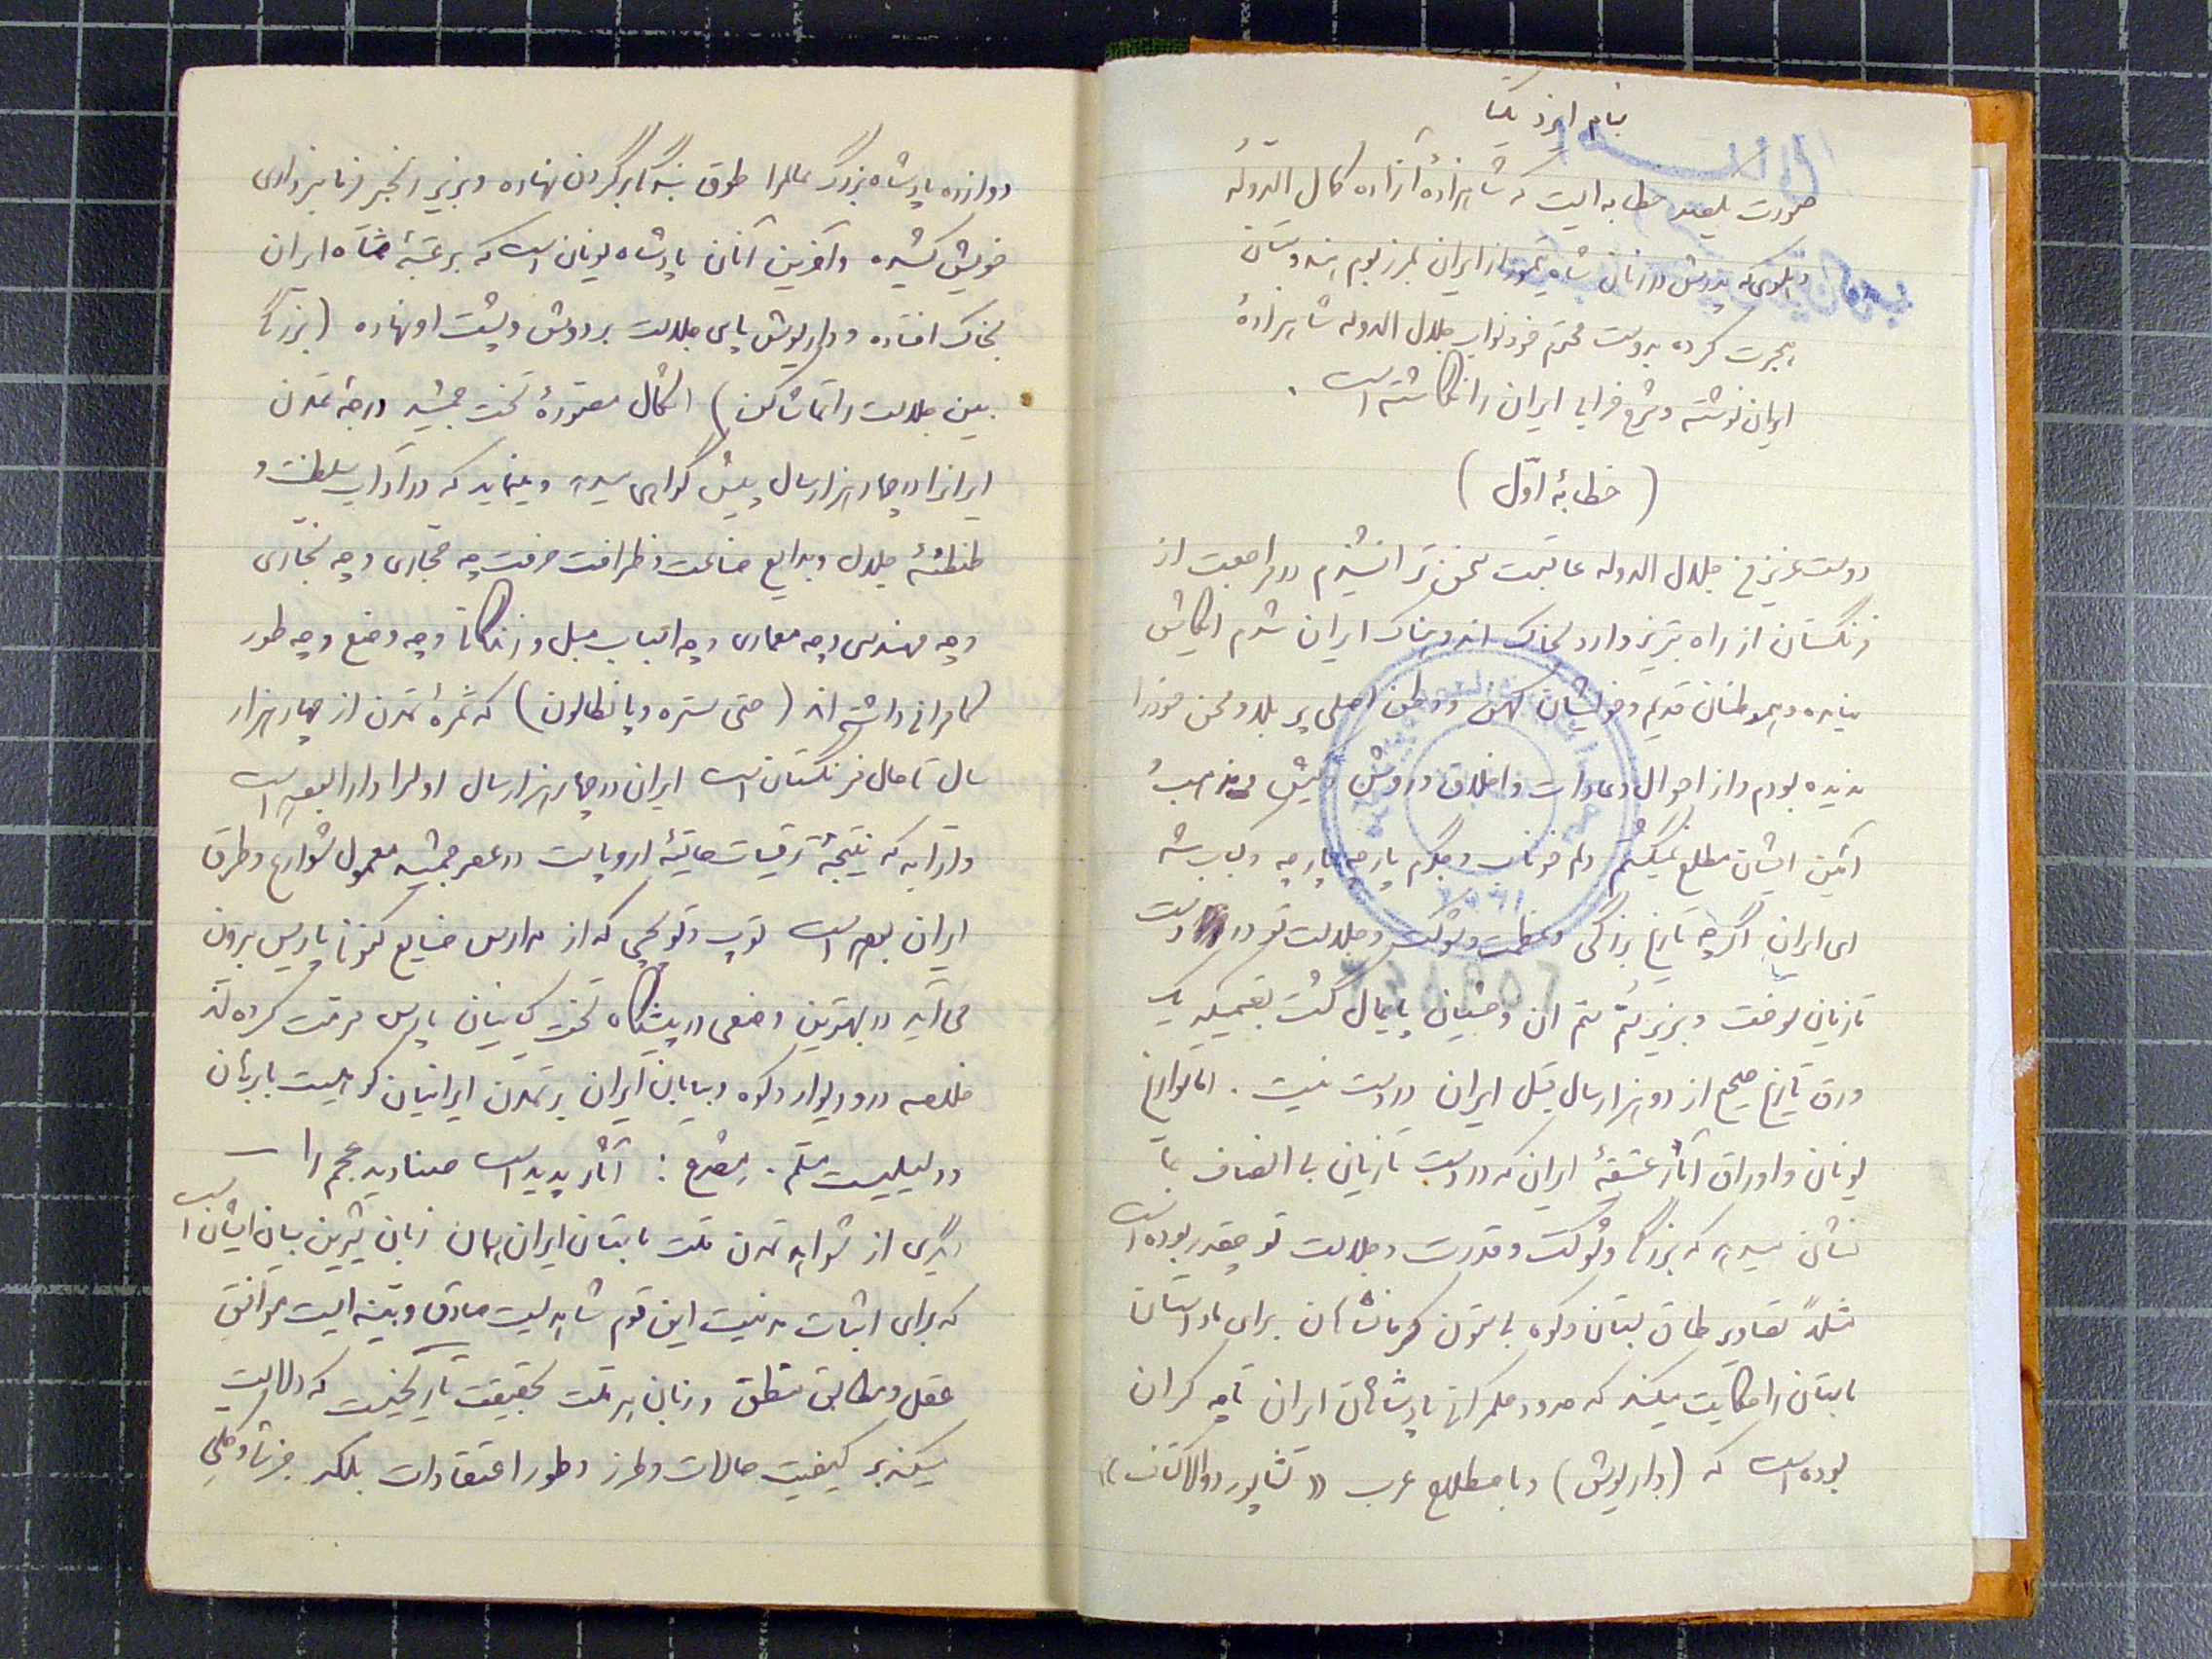 بنام ایزد یکتا
صورت یکصد خطابه ایست که شاهزادهٔ آزاده کمال الدوله
دهلوی که پدرش در زمان شاه تیمور از ایران بمرز بوم هندوستان
هجرت کرده بدوست محترم خود نواب جلال الدوله شاهزادهٔ
ایران نوشته و شرح خرابی ایران را نگاشته است .
( خطابهٔ اوّل )
دوست عزیز من جلال الدوله عاقبت سخن ترا نشنیدم در مراجعت از
فرنگستان از راه تبریز وارد خاک اندوهناک ایران شدم ایکاش
نیامده و هموطنان قدیم و خویشان کهن و وطن اصلی پر بلا و محن خود را
ندیده بودم و از احوال و عادات و اخلاق و روش و کیش و مذهب و
آئین ایشان مطلع نمیگشتم دلم خوناب و جگرم پارچه پارچه و کباب شد
ای ایران اگرچه تاریخ بزرگی و عظمت و شوکت و جلالت تو در دست
تازیان سوخت و بزیر سُم ستم آن وحشیان پایمال گشت بقسمیکه یک
ورق تاریخ صحیح از دو هزار سال قبل ایران در دست نیست . اما تواریخ
یونان و اوراق آثار عتیقهٔ ایران که در دست تازیان بی انصاف بما
نشان میدهد که بزرگی و شوکت و قدرت و جلالت تو چقدر بوده است
مثلاً تصاویر طاق بستان و کوه بی ستون کرمانشاهان برای ما داستان
باستان را حکایت میکند که حدود حکمرانی پادشاهان ایران تا چه کران
بوده است که (داریوش) و باصطلاح عرب «شاپور ذوالاکتاف»
دوازده پادشاه بزرگ عالم را طوق بندگی بر گردن نهاده و بزیر زنجیر فرمانبرداری
خویش کشیده و آخرین آنان پادشاه یونان است که بر عتبهٔ شاه ایران
بخاک افتاده و داریوش پای جلالت بر دوش و پشت او نهاده (بزرگی
ببین جلالت را تماشا کن) اشکال مصورهٔ تخت جمشید درجهٔ تمدن
ایران را در چهار هزار سال پیش گواهی میدهد و مینماید که در آداب سلطنت و
طنطنهٔ جلال و بدایع صناعت و ظرافت حرفت چه حجّاری و چه نجّاری
و چه مهندسی و چه معماری و چه اسباب مبل و زندگانی و چه وضع و چه طور
کامرانی داشته اند (حتی ستره و پانطالون) که ثمرهٔ تمدن از چهار هزار
سال تا حال فرنگستان است ایران در چهار هزار سال اول را دارا بوده است
و ارّابه که نتیجهٔ ترقیات حالیّهٔ اروپاست در عصر جمشید معمول شوارع و طرق
ایران بوده است توپ و توپچی که از مدارس صنایع کنونی پاریس بیرون
می آید در بهترین وضعی در پیشگاه تخت کیانیان پارس حرکت کرده اند
خلاصه در و دیوار و کوه و بیابان ایران بر تمدن ایرانیان گواهیست با برهان
و دلیلیست مسلّم . مصرع : آثار پدید است صنادید عجم را
دیگری از شواهد تمدن ملت باستان ایران همان زبان شیرین بیان ایشان است
که برای اثبات مدنیت این قوم شاهدیست صادق و بیّنه ایست موافق
عقل و مطابق منطق و زبان هر ملت بحقیقت تاریخیست که دلالت
میکند بر کیفیت حالات و طرز و طور اعتقادات بلکه جزئی و کلی